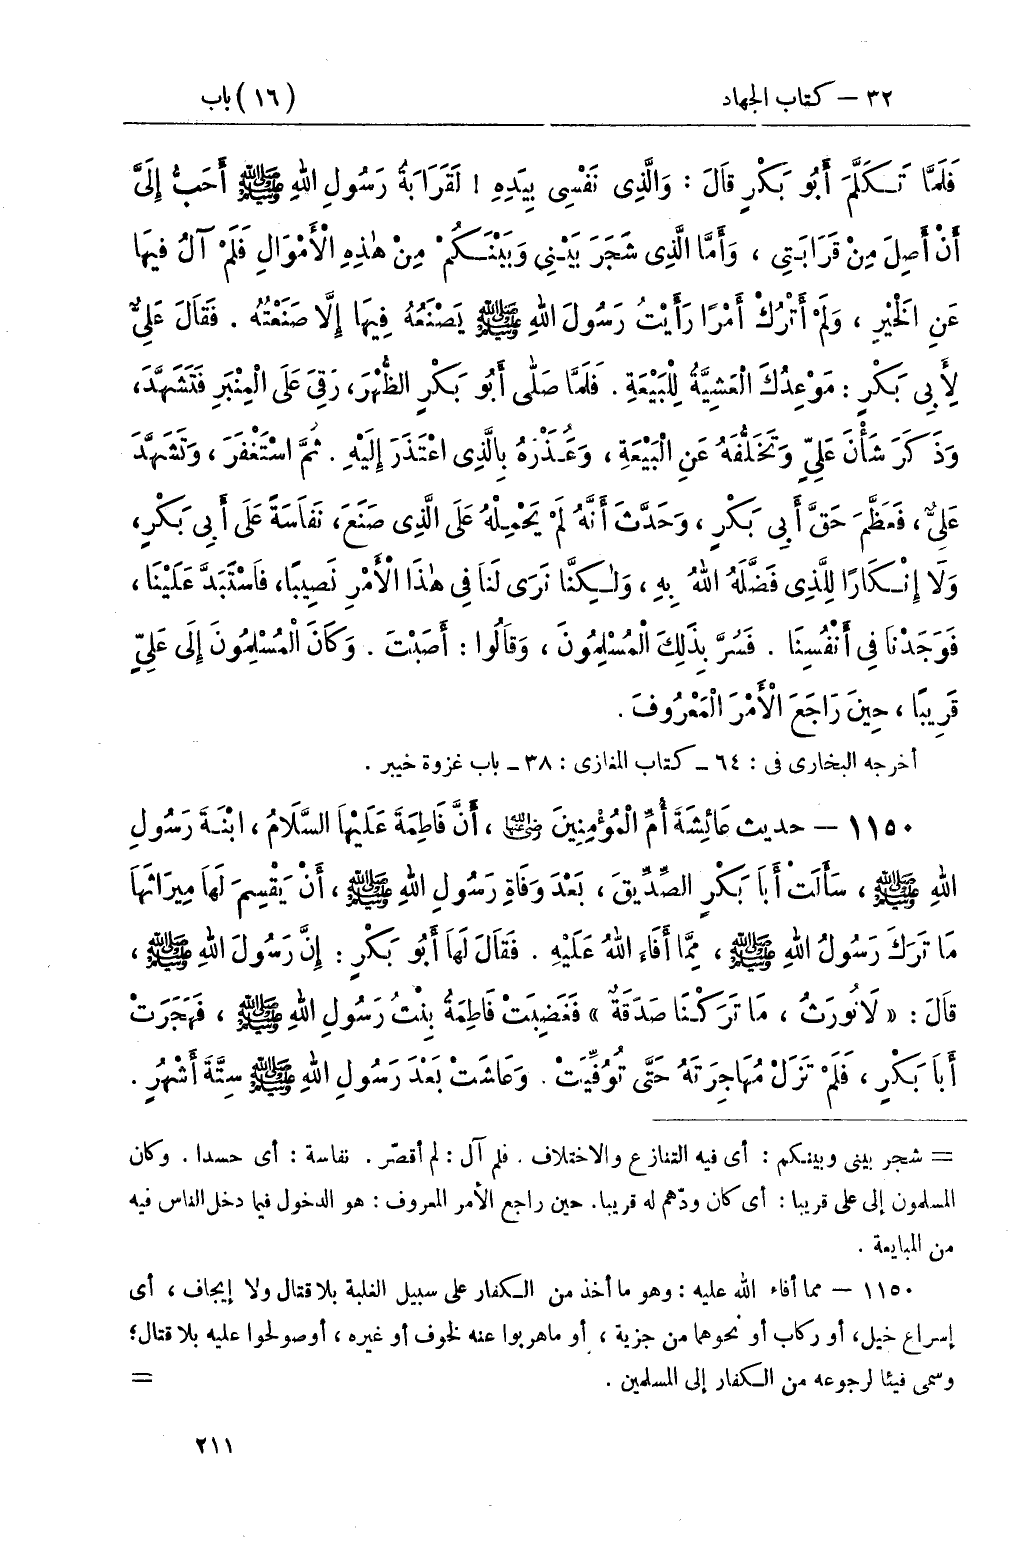 ٣٢ – كتاب الجهاد (١٦) باب
فَلَمَّا تَكَلَّمَ أَبُو بَكْرٍ قَالَ : وَالَّذِى نَفْسِى بِيَدِهِ ! لَقَرَابَةُ رَسُولِ اللهِ ﷺ أَحَبُّ إِلَىَّ
أَنْ أَصِلَ مِنْ قَرَابَتِى ، وَأَمَّا الَّذِى شَجَرَ بَيْنِى وَبَيْنَكُمْ مِنْ هٰذِهِ الْأَمْوَالِ فَلَمْ آلُ فِيهَا
عَنِ الْخَيْرِ ، وَلَمْ أَتْرُكْ أَمْرًا رَأَيْتُ رَسُولَ اللهِ ﷺ يَصْنَعُهُ فِيهَا إِلَّا صَنَعْتُهُ . فَقَالَ عَلِىٌّ
لِأَبِى بَكْرٍ : مَوْعِدُكَ الْعَشِيَّةُ لِلْبَيْعَةِ . فَلَمَّا صَلَّى أَبُو بَكْرٍ الظُّهْرَ، رَقِىَ عَلَى الْمِنْبَرِ فَتَشَهَّدَ،
وَذَكَرَ شَأْنَ عَلِىٍّ وَتَخَلُّفَهُ عَنِ الْبَيْعَةِ ، وَعُذْرَهُ بِالَّذِى اعْتَذَرَ إِلَيْهِ . ثُمَّ اسْتَغْفَرَ ، وَتَشَهَّدَ
عَلِىٌّ ، فَعَظَّمَ حَقَّ أَبِى بَكْرٍ ، وَحَدَّثَ أَنَّهُ لَمْ يَحْمِلْهُ عَلَى الَّذِى صَنَعَ، نَفَاسَةً عَلَى أَبِى بَكْرٍ،
وَلَا إِنْكَارًا لِلَّذِى فَضَّلَهُ اللهُ بِهِ ، وَلٰكِنَّا نَرَى لَنَا فِى هٰذَا الْأَمْرِ نَصِيبًا، فَاسْتَبَدَّ عَلَيْنَا ،
فَوَجَدْنَا فِى أَنْفُسِنَا . فَسُرَّ بِذٰلِكَ الْمُسْلِمُونَ ، وَقَالُوا : أَصَبْتَ . وَكَانَ الْمُسْلِمُونَ إِلَى عَلِىٍّ
قَرِيبًا ، حِينَ رَاجَعَ الْأَمْرَ الْمَعْرُوفَ .
أخرجه البخارى فى : ٦٤ ـ كتاب المغازى : ٣٨ ـ باب غزوة خيبر .
١١٥٠ – حديث عَائِشَةَ أُمِّ الْمُؤْمِنِينَ رضى الله عنها ، أَنَّ فَاطِمَةَ عَلَيْهَا السَّلَامُ ، ابْنَةَ رَسُولِ
اللهِ ﷺ ، سَأَلَتْ أَبَا بَكْرٍ الصِّدِّيقَ ، بَعْدَ وَفَاةِ رَسُولِ اللهِ ﷺ ، أَنْ يَقْسِمَ لَهَا مِيرَاثَهَا
مَا تَرَكَ رَسُولُ اللهِ ﷺ ، مِمَّا أَفَاءَ اللهُ عَلَيْهِ . فَقَالَ لَهَا أَبُو بَكْرٍ : إِنَّ رَسُولَ اللهِ ﷺ ،
قَالَ : « لَا نُورَثُ ، مَا تَرَكْنَا صَدَقَةٌ » فَغَضِبَتْ فَاطِمَةُ بِنْتُ رَسُولِ اللهِ ﷺ ، فَهَجَرَتْ
أَبَا بَكْرٍ ، فَلَمْ تَزَلْ مُهَاجِرَتَهُ حَتَّى تُوُفِّيَتْ . وَعَاشَتْ بَعْدَ رَسُولِ اللهِ ﷺ سِتَّةَ أَشْهُرٍ .
= شجر بينى وبينكم : أى فيه التنازع والاختلاف . فلم آل : لم أقصّر . نفاسة : أى حسدا . وكان
المسلمون إلى على قريبا : أى كان ودّهم له قريبا. حين راجع الأمر المعروف : هو الدخول فيما دخل الناس فيه
من المبايعة .
١١٥٠ – مما أفاء الله عليه : وهو ما أخذ من الكفار على سبيل الغلبة بلا قتال ولا إيجاف ، أى
إسراع خيل، أو ركاب أو نحوهما من جزية ، أو ما هربوا عنه لخوف أو غيره ، أو صولحوا عليه بلا قتال؛
وسمى فيئا لرجوعه من الكفار إلى المسلمين . =
٢١١